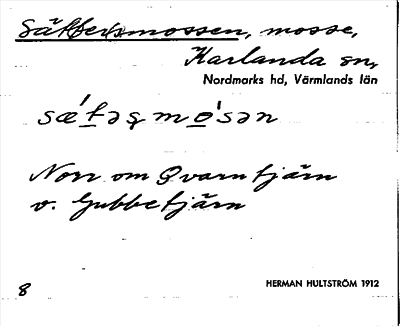 Sätersmossen, mosse,
Karlanda sn,
Nordmarks hd, Värmlands län
sǽtəʂmo̲̍sən
Norr om Qvarntjärn
v. Gubbetjärn
8
HERMAN HULTSTRÖM 1912